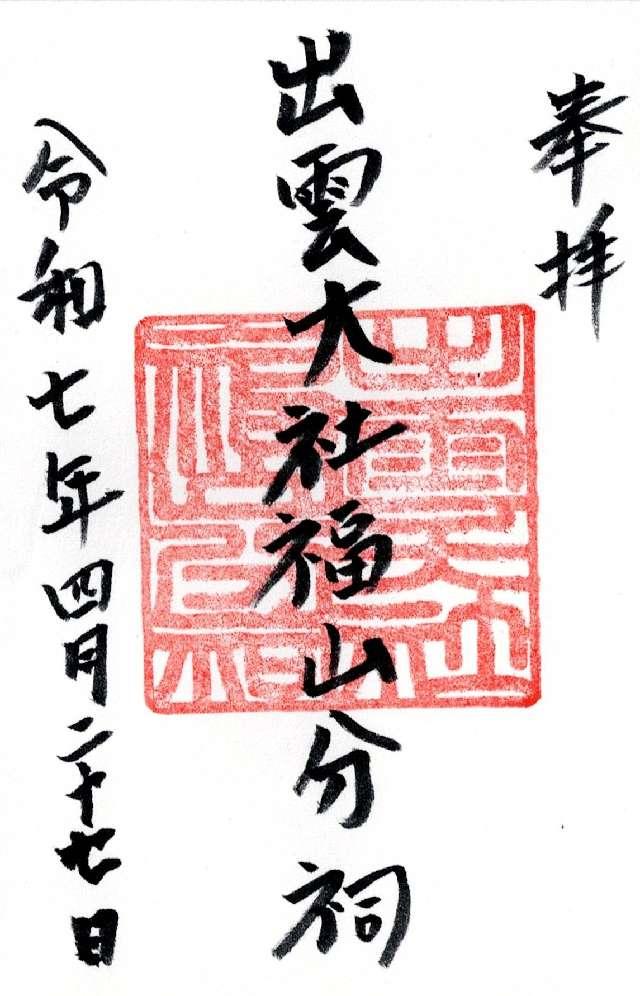 奉拝
出雲大社福山分祠
令和七年四月二十七日